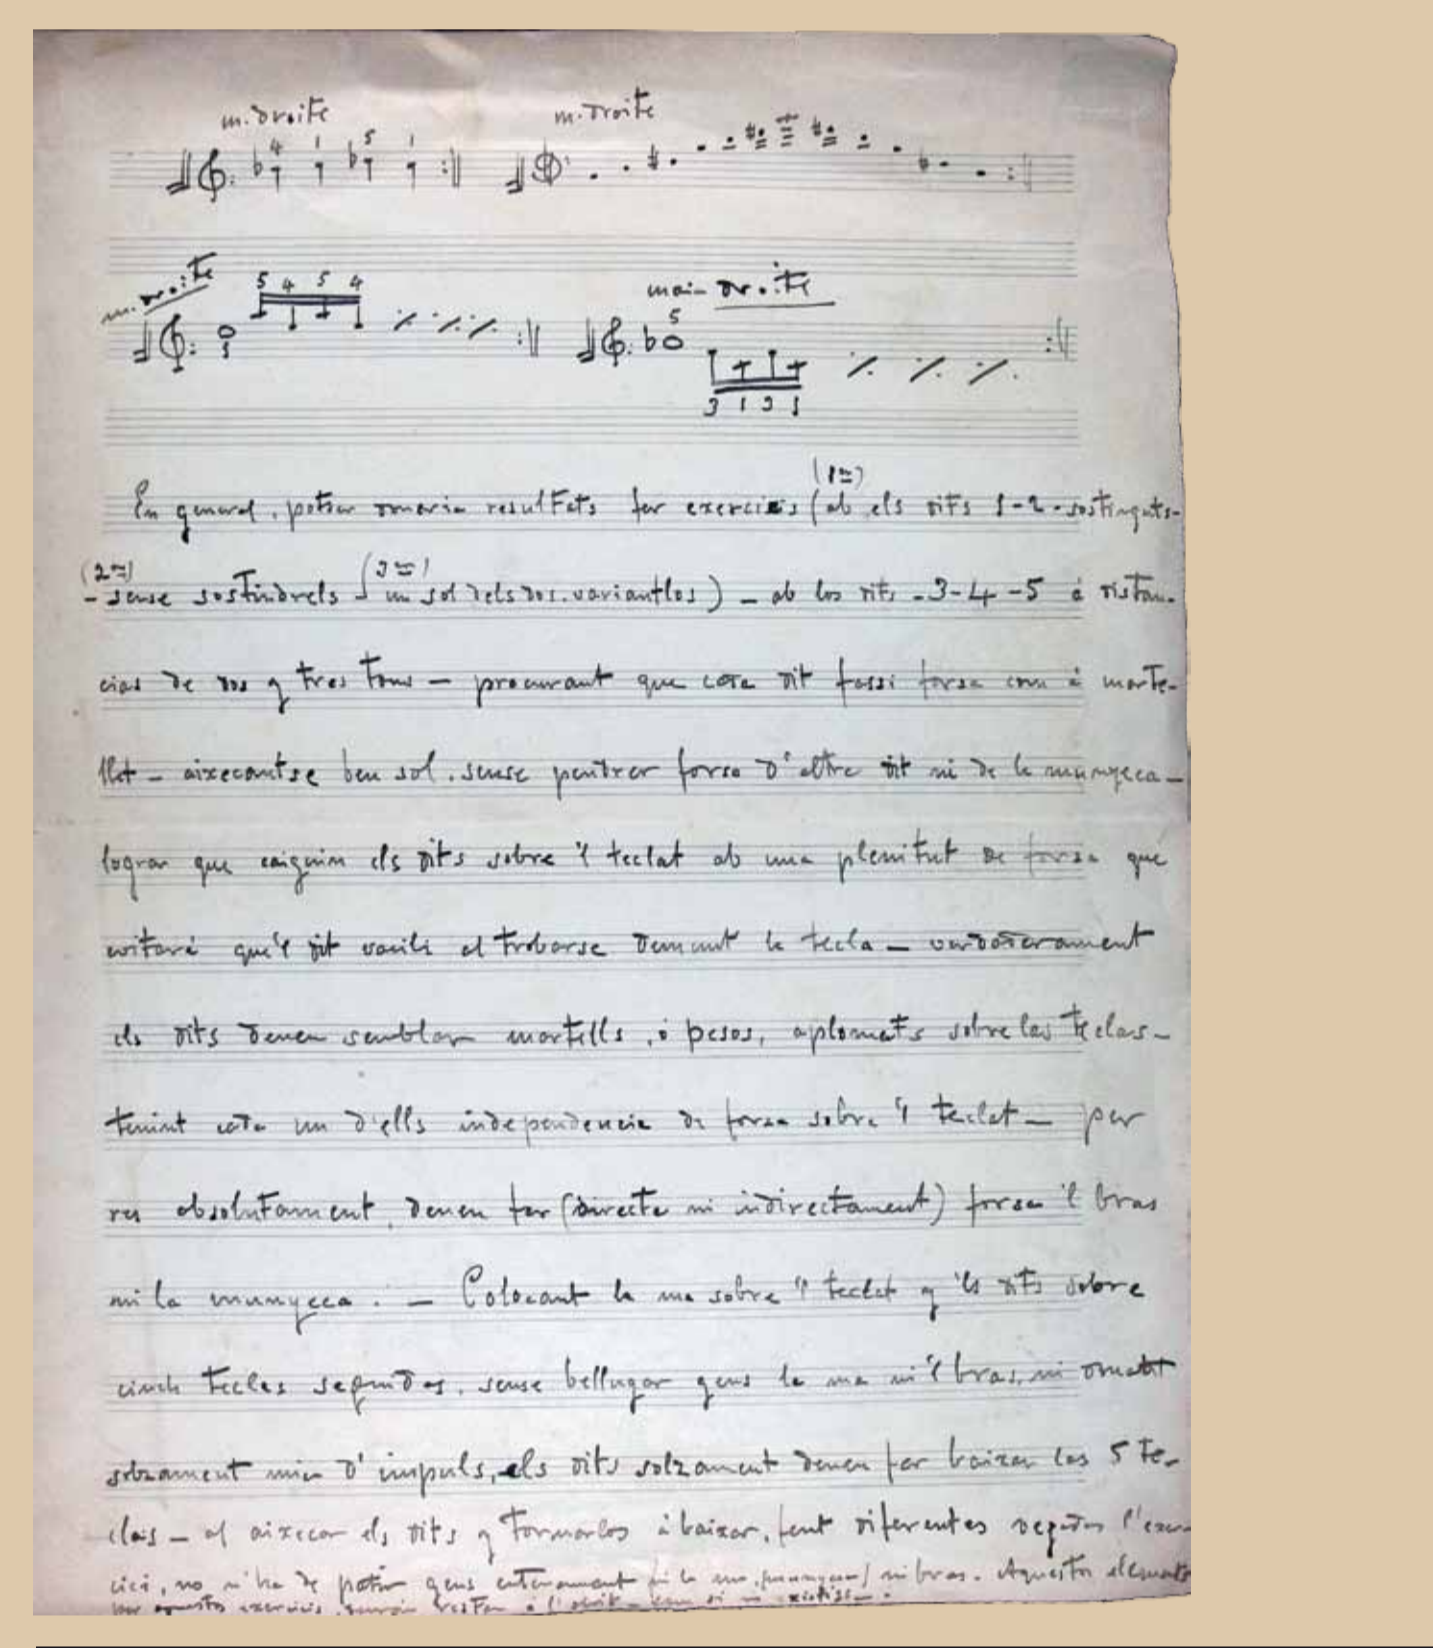 m. droite
m. droite
4 1 5 1
m. droite
5 4 5 4
1
main droite
5
3 1 3 1
(1er)
En general, potser donaria resultats fer exercicis (ab els dits 1-2-sostinguts-
(2on) (3er)
- sense sostindrels - un sol dels dos. variantlos) - ab los dits - 3 - 4 - 5 á distan-
cias de dos y tres tons - procurant que cada dit fassi forsa com á marte-
llet - aixecantse ben sol, sense pendrer forsa d'altre dit ni de la munyeca -
lograr que caiguin els dits sobre 'l teclat ab una plenitut de forsa que
evitará que'l dit vacili al trobarse demunt la tecla - verdaderament
els dits deuen semblar martells, ó pesos, aplomats sobre las teclas -
tenint cada un d'ells independencia de forsa sobre 'l teclat - per
res absolutament, deuen fer (directe ni indirectament) forsa 'l bras
ni la munyeca. - Colocant la ma sobre 'l teclat y 'ls dits sobre
cinch tecles seguidas, sense bellugar gens la ma ni 'l bras, ni donant
solzament mica d'impuls, els dits solzament deuen fer baixar las 5 te-
clas - al aixecar els dits y tornarlos á baixar, fent diferentes vegadas l'exer-
cici, no n'ha de potser gens enterament ni la ma, (munyeca) ni bras. Aquestos elements
per aquestos exercicis, deurán restar á l'oblit - com si no existissin.